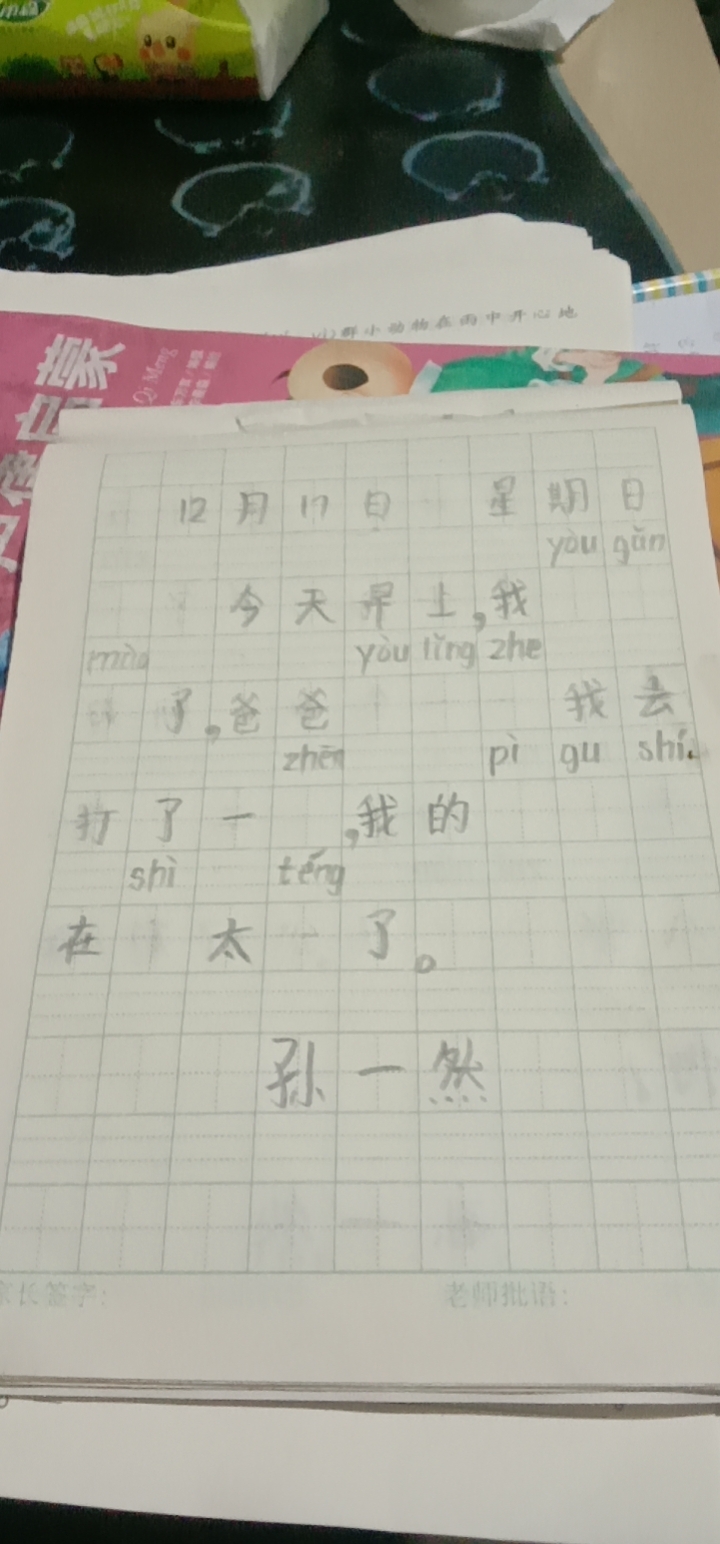 群小动物在雨中开心地
启蒙
Qi Meng
12月17日 星期日
yòu gǎn
今天早上,我
mào yòu lǐng zhe
了,爸爸 我去
zhēn pì gu shí
打了一 ,我的
shì téng
在 太 了。
孙一然
家长签字:
老师批语: